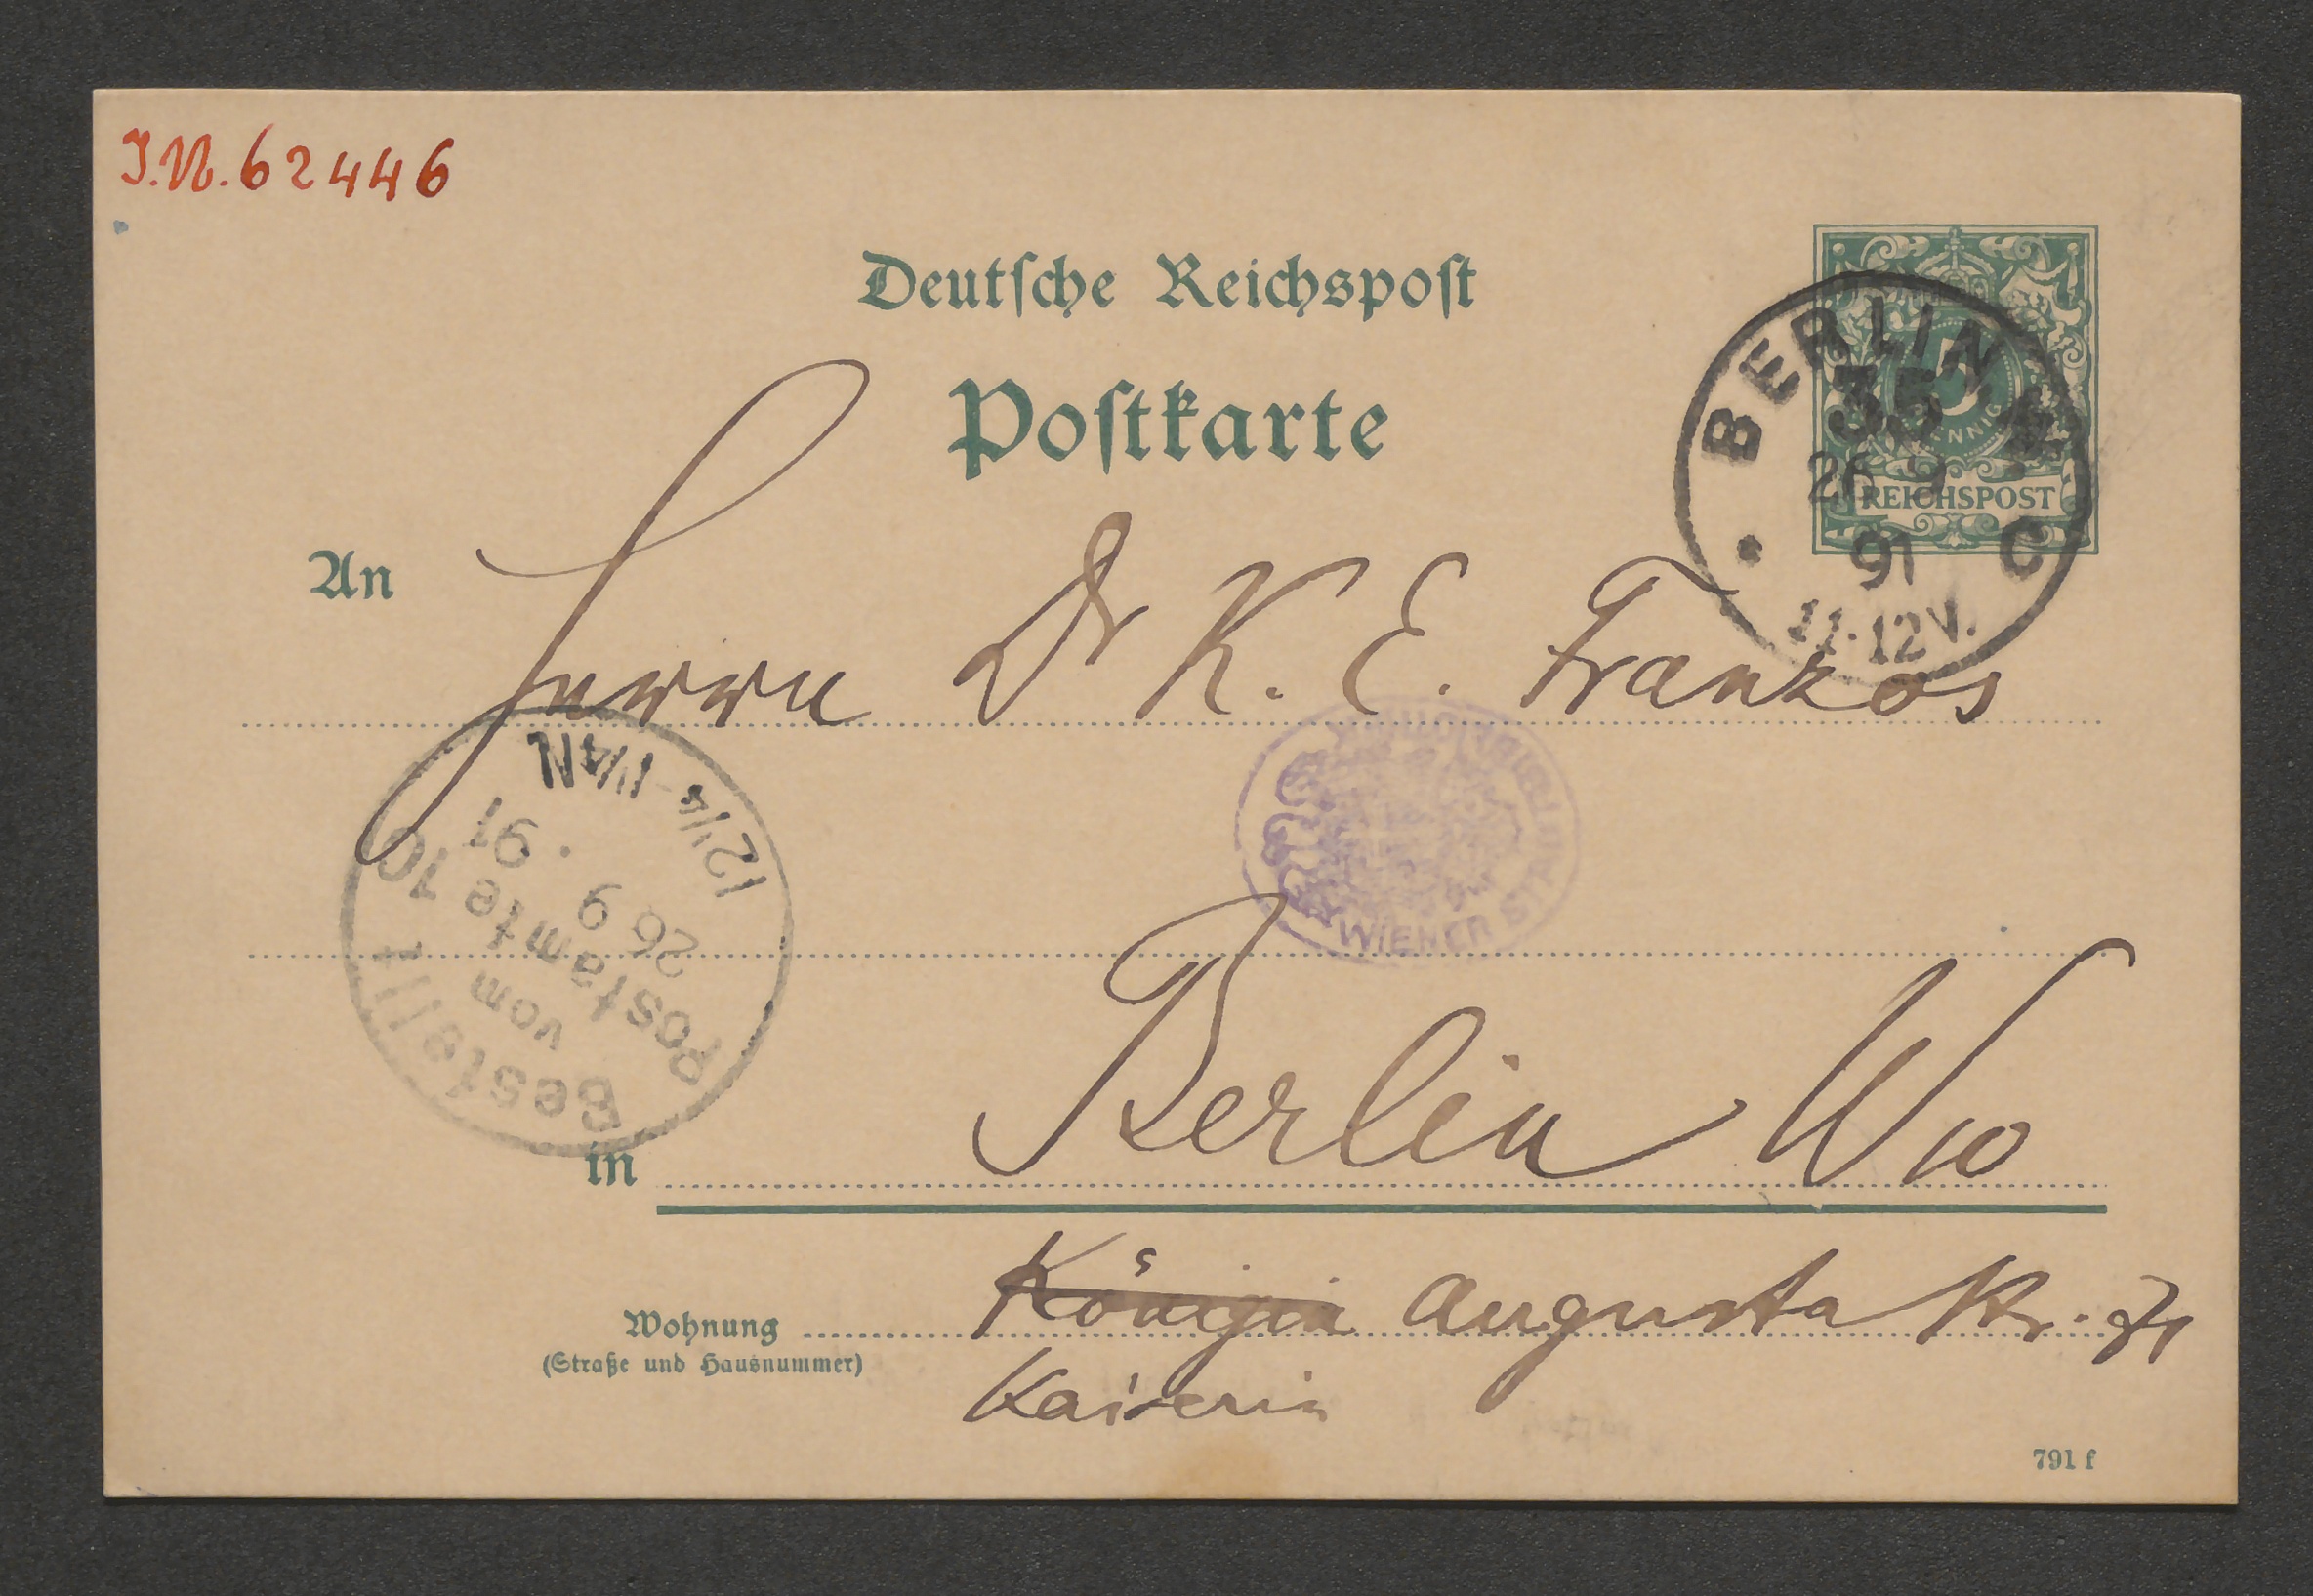 J.N. 62446
Deutsche Reichspost
Postkarte
5
PFENNIG
REICHSPOST
BERLIN
35
26 9
91
C
11-12V.
An Herrn Dr K. E. Franzos
WIENER STADTBIBLIOTHEK
Bestellt
vom
Postamte 10
26 9 . 91
12¼-1¼N
in Berlin W 10
Wohnung Königin Augusta Str. 71
(Straße und Hausnummer)
Kaiserin
791 f